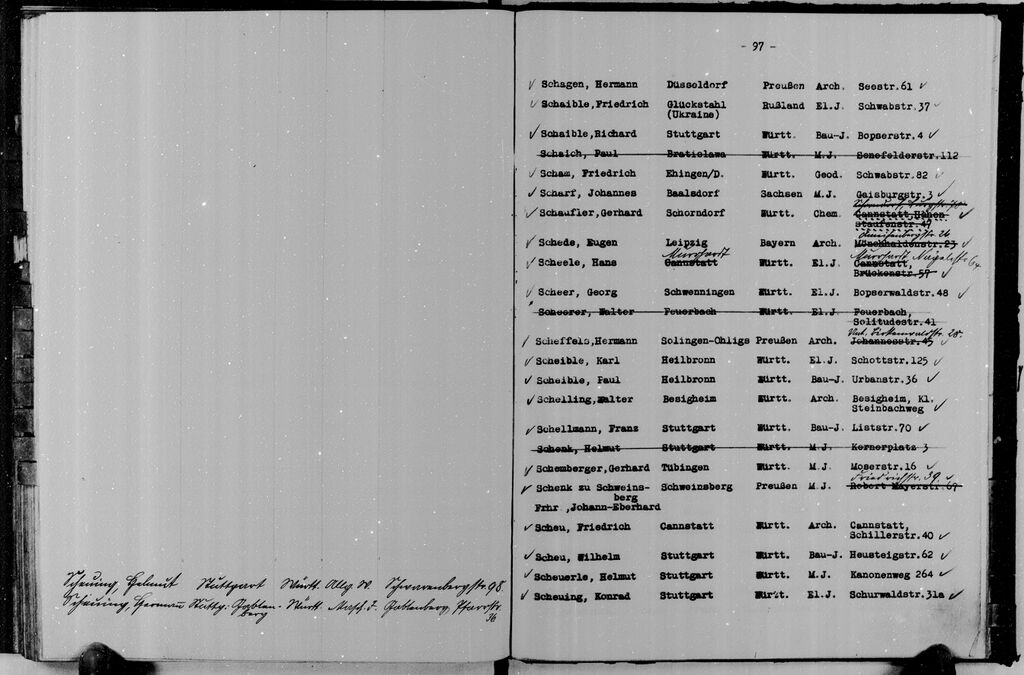 Scheuing, Helmut Stuttgart Württ. Allg. W. Schwarenbergstr. 98.
Scheuing, Herman Stuttg. Gablen- Württ. Masch. J. Gablenberg, Pfarrstr.
berg 36
- 97 -
✓ Schagen, Hermann Düsseldorf Preußen Arch. Seestr.61 ✓
✓ Schaible,Friedrich Glückstahl Rußland El.J. Schwabstr.37 ✓
(Ukraine)
✓ Schaible,Richard Stuttgart Württ. Bau-J. Bopserstr.4 ✓
Schaich, Paul Bratislawa Württ. M.J. Senefelderstr.112
✓ Scham, Friedrich Ehingen/D. Württ. Geod. Schwabstr.82 ✓
✓ Scharf, Johannes Baalsdorf Sachsen M.J. Gaisburgstr.3 ✓
Schorndorf,
✓ Schaufler,Gerhard Schorndorf Württ. Chem. Cannstatt,Hohen ✓
Staufenstr.47
✓ Schede, Eugen Leipzig Bayern Arch. Mönchhaldenstr.23 ✓
Murrhardt Murrhardt
✓ Scheele, Hans Cannstatt Württ. El.J. Cannstatt,
Brückenstr.57 ✓
✓ Scheer, Georg Schwenningen Württ. El.J. Bopserwaldstr.48 ✓
Scheerer, Walter Feuerbach Württ. El.J. Feuerbach,
Solitudestr.41
Birkenwaldstr. 28.
✓ Scheffels,Hermann Solingen-Ohligs Preußen Arch. Johannesstr.47 ✓
✓ Scheible, Karl Heilbronn Württ. El.J. Schottstr.125 ✓
✓ Scheible, Paul Heilbronn Württ. Bau-J. Urbanstr.36 ✓
✓ Schelling,Walter Besigheim Württ. Arch. Besigheim, Kl.
Steinbachweg ✓
✓ Schellmann, Franz Stuttgart Württ. Bau-J. Liststr.70 ✓
Schenk, Helmut Stuttgart Württ. M.J. Kernerplatz 3
✓ Schemberger,Gerhard Tübingen Württ. M.J. Moserstr.16 ✓
Friedrichstr. 39. ✓
✓ Schenk zu Schweins- Schweinsberg Preußen M.J. Robert Mayerstr.69
berg
Frhr.,Johann-Eberhard
✓ Scheu, Friedrich Cannstatt Württ. Arch. Cannstatt,
Schillerstr.40 ✓
✓ Scheu, Wilhelm Stuttgart Württ. Bau-J. Heusteigstr.62 ✓
✓ Scheuerle, Helmut Stuttgart Württ. M.J. Kanonenweg 264 ✓
✓ Scheuing, Konrad Stuttgart Württ. El.J. Schurwaldstr.31a ✓